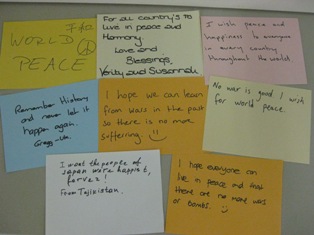 WORLD
PEACE
For all country's to
live in peace and
Harmony.
Love and
Blessings,
Verity and Susannah
I wish peace and
happiness to everyone
in every country
throughout the world
Remember History
and never let it
happen again.
I hope we can learn
from wars in the past
so there is no more
suffering. :)
No war is good I wish
for world peace.
I want the people of
Japan more happiest,
forver!
From Tajikistan.
I hope everyone can
live in peace and that
there are no more wars
or bombs. :)